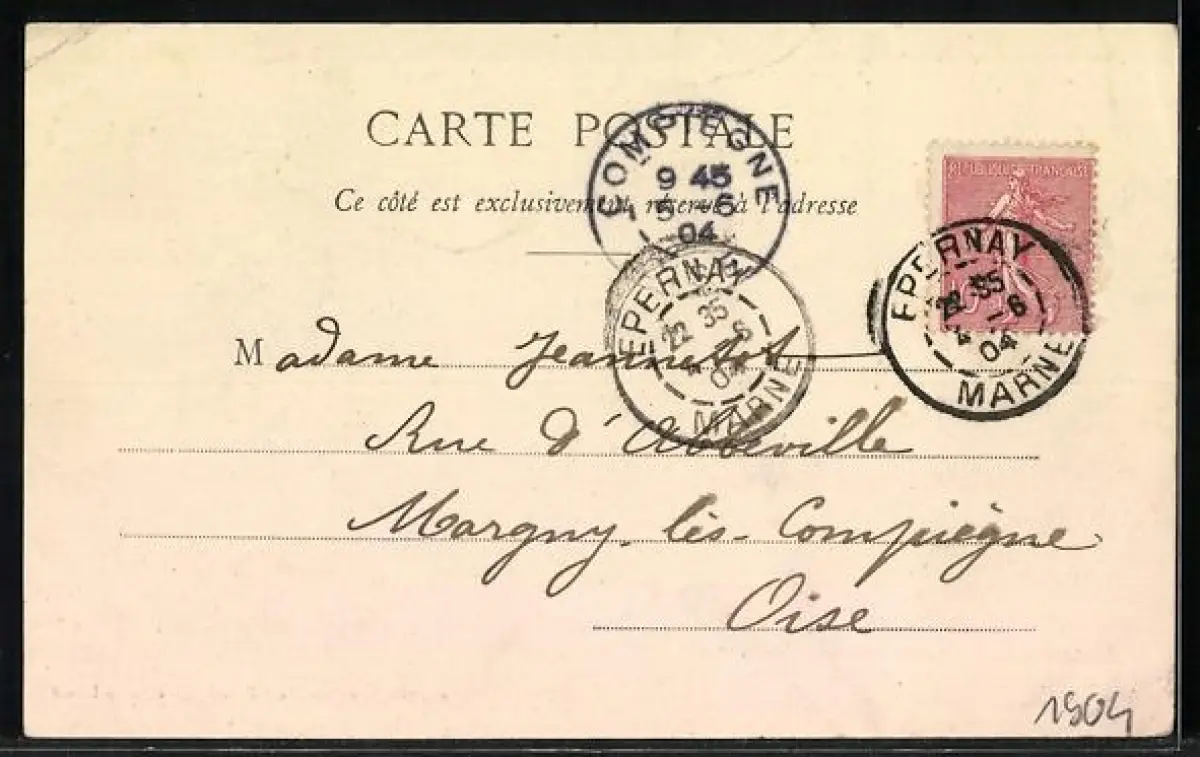 CARTE POSTALE
Ce côté est exclusivement réservé à l'adresse
COMPIEGNE
9 45
5 -6
04
REPUBLIQUE FRANÇAISE
EPERNAY
22 35
4 -6
04
MARNE
EPERNAY
22 35
4 -6
04
MARNE
Madame Jeannetot
Rue d'Abbeville
Margny-lès-Compiègne
Oise
1904